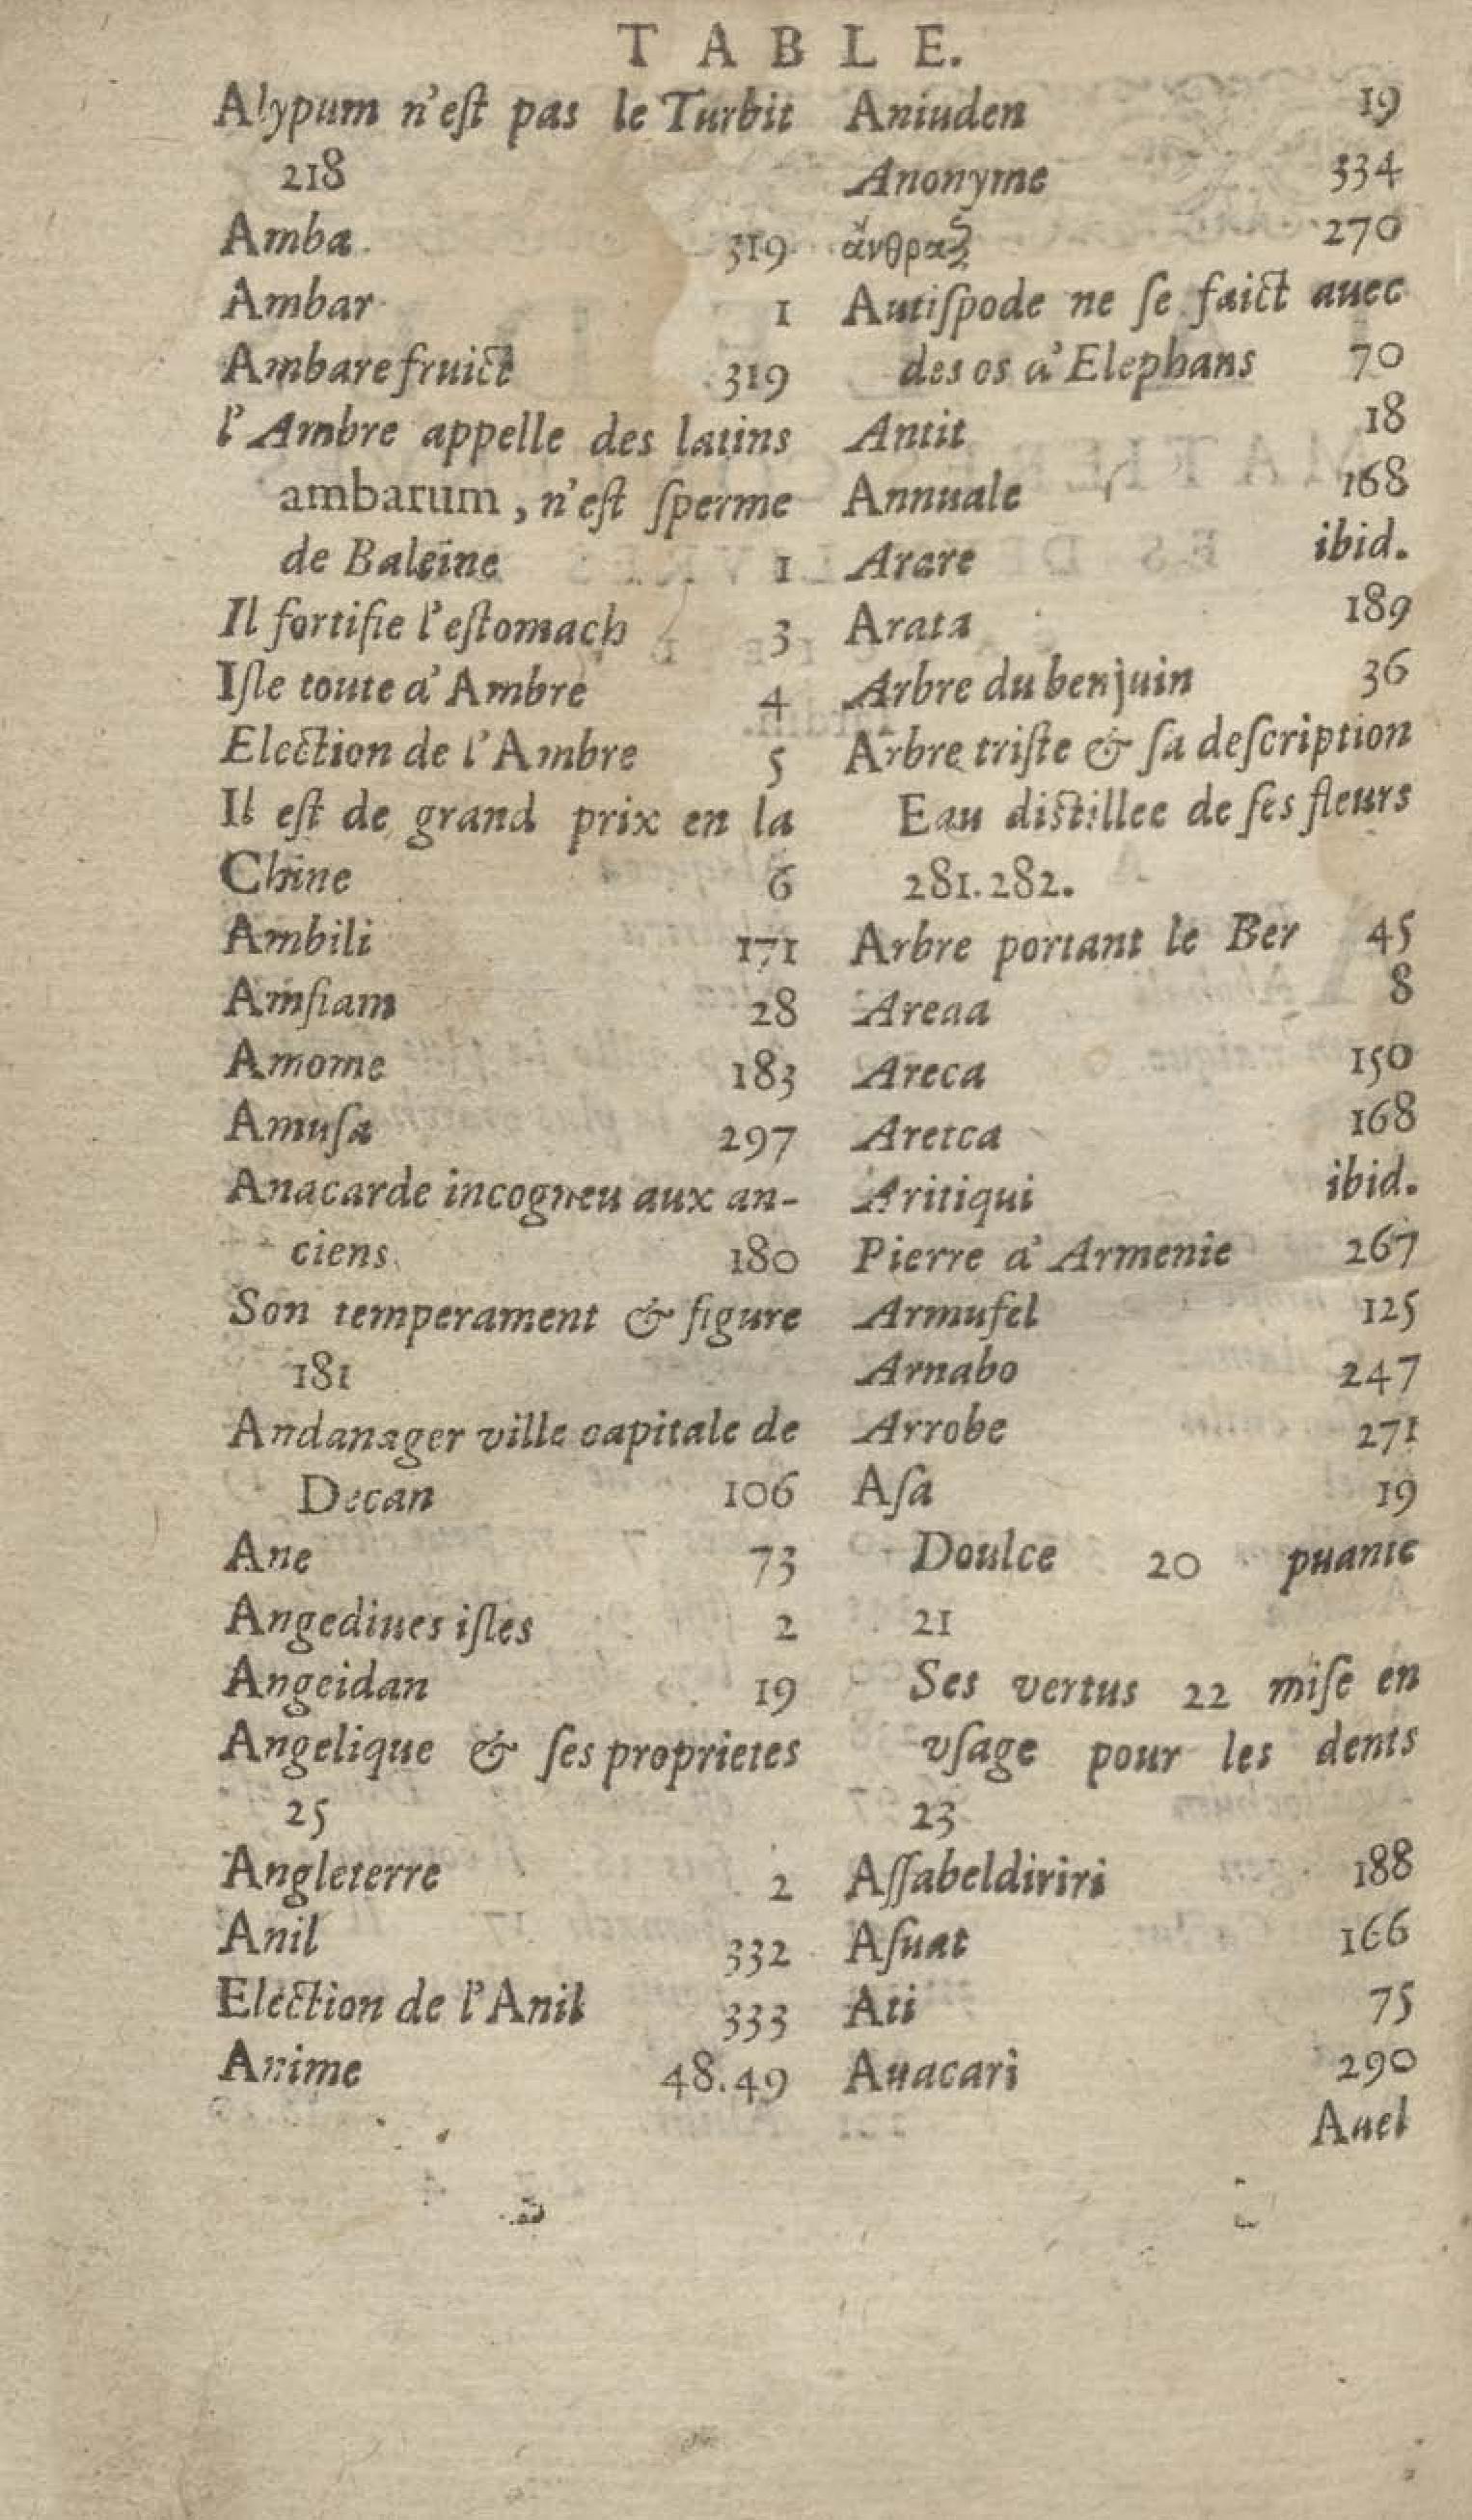 TABLE.
Alypum n'eſt pas le Turbit
218
Amba 319
Ambar 1
Ambare fruict 319
l'Ambre appelle des latins
ambarum, n'eſt ſperme
de Baleine 1
Il fortifie l'eſtomach 3
Iſle toute d'Ambre 4
Election de l'Ambre 5
Il eſt de grand prix en la
Chine 6
Ambili 171
Amſiam 28
Amome 183
Amuſa 297
Anacarde incogneu aux an-
ciens 180
Son temperament & figure
181
Andanager ville capitale de
Decan 106
Ane 73
Angediues iſles 2
Angeidan 19
Angelique & ſes proprietes
25
Angleterre 2
Anil 332
Election de l'Anil 333
Anime 48.49
Aniuden 19
Anonyme 334
ἄνθραξ 270
Autiſpode ne ſe faict auec
des os d'Elephans 70
Antit 18
Annuale 168
Arare ibid.
Arata 189
Arbre du benjuin 36
Arbre triſte & ſa deſcription
Eau diſtillee de ſes fleurs
281.282.
Arbre portant le Ber 45
Areaa 8
Areca 150
Aretca 168
Aritiqui ibid.
Pierre d'Armenie 267
Armufel 125
Arnabo 247
Arrobe 271
Aſa 19
Doulce 20 puante
21
Ses vertus 22 miſe en
vſage pour les dents
23
Aſſabeldiriri 188
Aſuat 166
Ati 75
Auacari 290
Auel